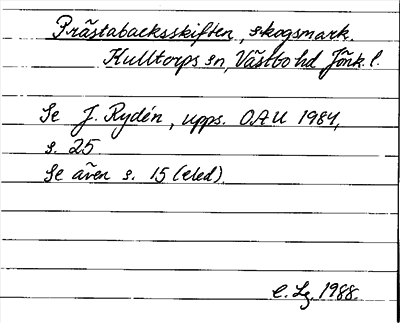 Prästabacksskiften, skogsmark.
Kulltorps sn, Västbo hd Jönk l.
Se J. Rydén, upps. OAU 1984,
s. 25
Se även s. 15 (eled)
E. Lg. 1988.